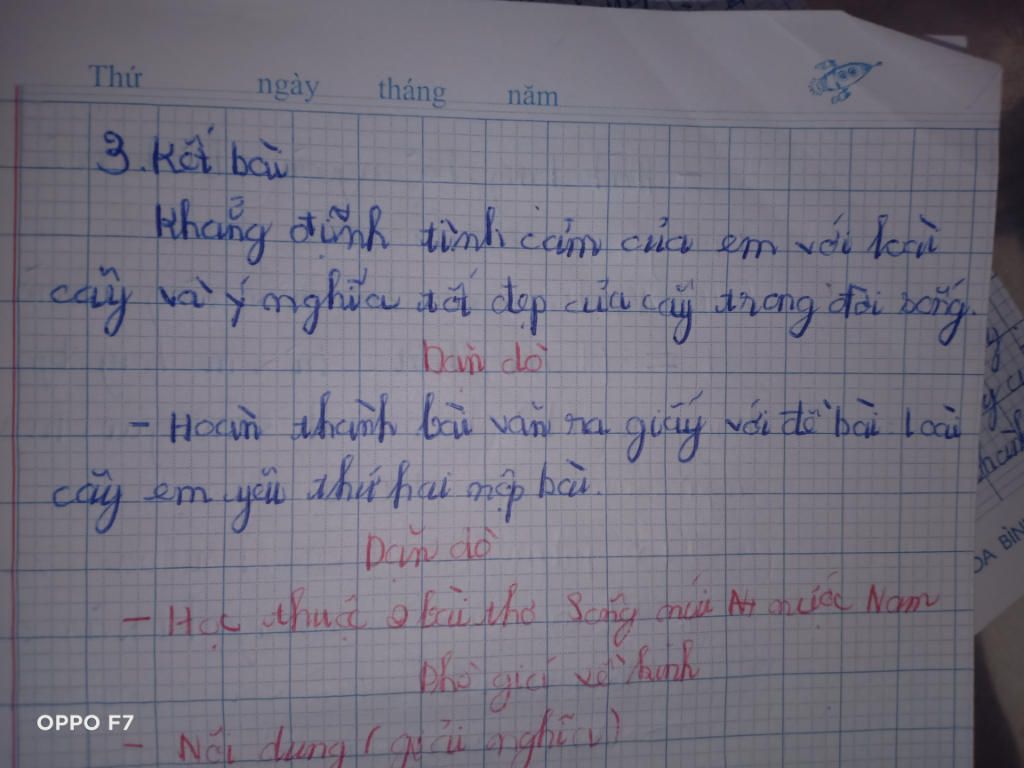 Thứ ngày tháng năm
3. Kết bài
Khẳng định tình cảm của em với loài
cây và ý nghĩa tốt đẹp của cây trong đời sống.
Dặn dò
- Hoàn thành bài văn ra giấy với đề bài loài
cây em yêu thứ hai nộp bài.
Dặn dò
- Học thuộc 2 bài thơ Sông núi nước Nam
Phò giá về kinh
- Nội dung (giải nghĩa)
OPPO F7
OA BÌN